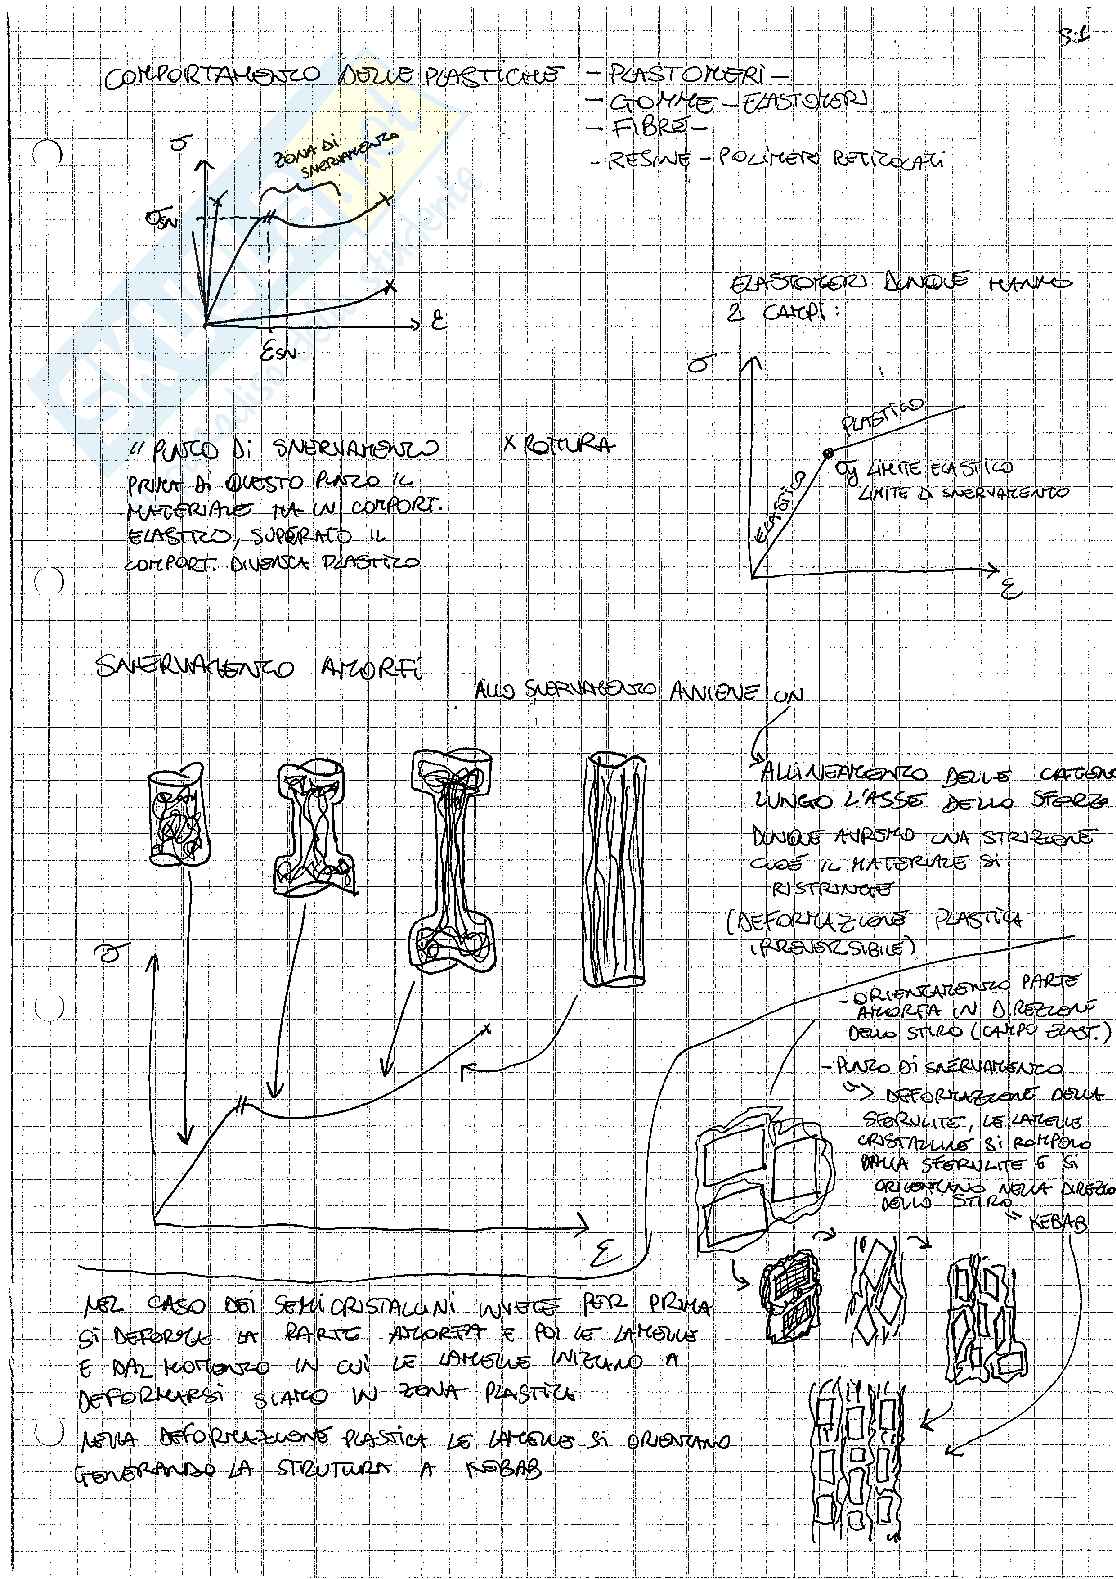 3.1
COMPORTAMENTO DELLE PLASTICHE - PLASTOMERI -
- GOMME - ELASTOMERI
- FIBRE -
- RESINE - POLIMERI RETICOLATI
σ
ZONA DI
SNERVAMENTO
σSN
ε
εSN
ELASTOMERI DUNQUE HANNO
2 CAMPI:
σ
PLASTICO
ELASTICO
σy LIMITE ELASTICO
LIMITE DI SNERVAMENTO
ε
// PUNTO DI SNERVAMENTO
X ROTTURA
PRIMA DI QUESTO PUNTO IL
MATERIALE HA UN COMPORT.
ELASTICO, SUPERATO IL
COMPORT. DIVENTA PLASTICO
SNERVAMENTO AMORFI
ALLO SNERVAMENTO AVVIENE UN
ALLINEAMENTO DELLE CATENE
LUNGO L'ASSE DELLO SFORZO
DUNQUE AVREMO UNA STRIZIONE
CIOÈ IL MATERIALE SI
RISTRINGE
(DEFORMAZIONE PLASTICA
IRREVERSIBILE)
σ
ε
- ORIENTAMENTO PARTE
AMORFA IN DIREZIONE
DELLO STIRO (CAMPO ELAST.)
- PUNTO DI SNERVAMENTO
DEFORMAZIONE DELLA
SFERULITE, LE LAMELLE
CRISTALLINE SI ROMPONO
DALLA SFERULITE E SI
ORIENTANO NELLA DIREZIO
DELLO STIRO
KEBAB
NEL CASO DEI SEMICRISTALLINI INVECE PER PRIMA
SI DEFORMA LA PARTE AMORFA E POI LE LAMELLE
E DAL MOMENTO IN CUI LE LAMELLE INIZIANO A
DEFORMARSI SIAMO IN ZONA PLASTICA
NELLA DEFORMAZIONE PLASTICA LE LAMELLE SI ORIENTANO
GENERANDO LA STRUTURA A KEBAB